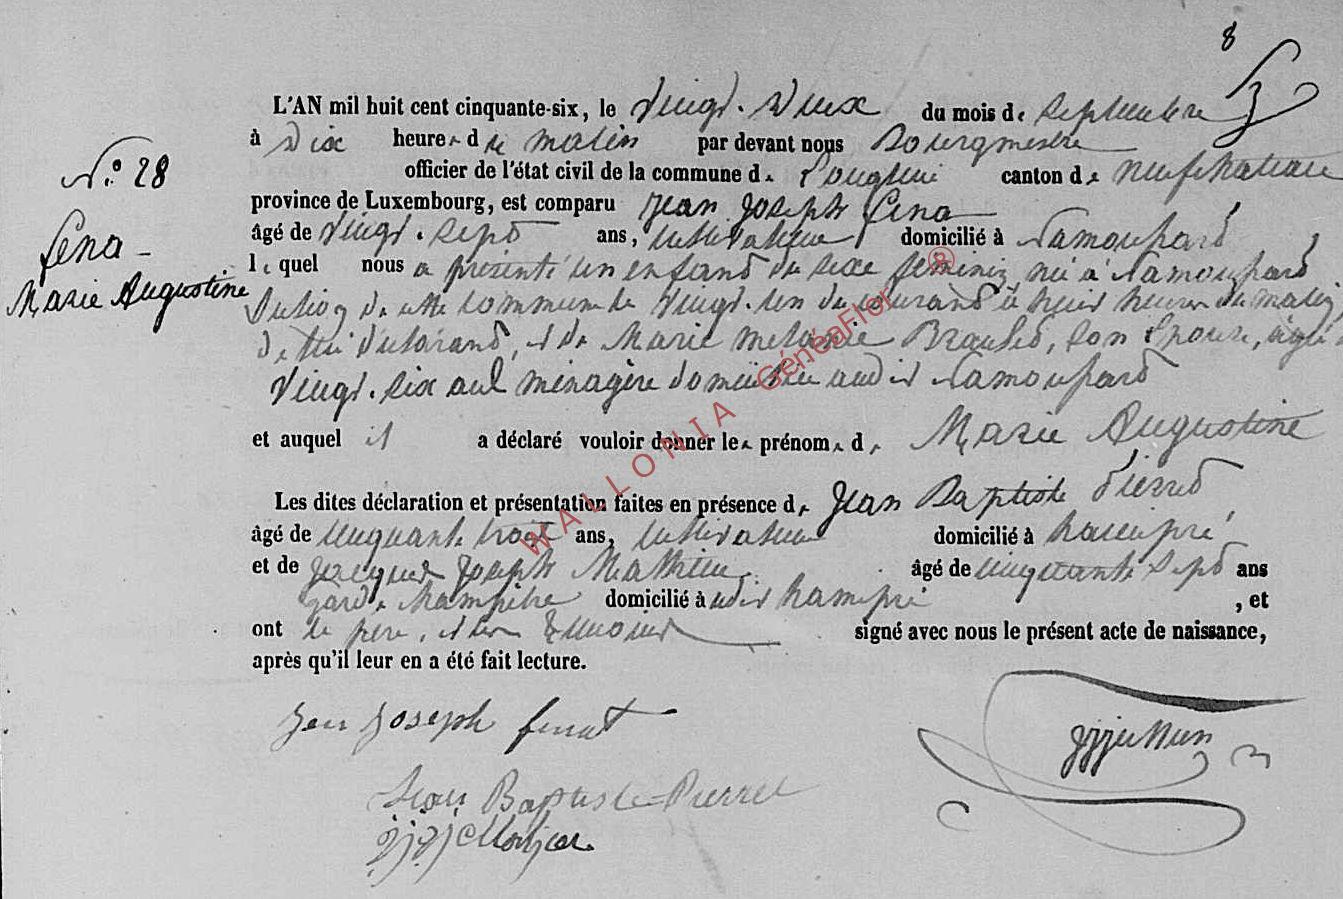 8
L'AN mil huit cent cinquante-six, le vingt-deux du mois de septembre
à dix heures du matin par devant nous Bourgmestre
N.° 28
officier de l'état civil de la commune de Longlier canton de Neufchateau
province de Luxembourg, est comparu Jean Joseph Fena
Fena
Marie Augustine
âgé de vingt-sept ans, cultivateur domicilié à Namoussard
lequel nous a présenté un enfant du sexe feminin né à Namoussard
Section de cette commune le vingt-un du courant à heures du matin
de lui déclarant, et de Marie melanie son Epouse, agée de
vingt-six ans ménagère domiciliée audit Namoussard
et auquel il a déclaré vouloir donner les prénoms de Marie Augustine
Les dites déclaration et présentation faites en présence de Jean Baptiste Pierret
âgé de cinquante trois ans, cultivateur domicilié à hamipré
et de Jacques Joseph Mathieu âgé de cinquante sept ans
garde champêtre domicilié à audit hamipré , et
ont le père, et les témoins signé avec nous le présent acte de naissance,
après qu'il leur en a été fait lecture.
Jean Joseph fenat
Jean Baptiste Pierret
WALLONIA GénéaFlor ®